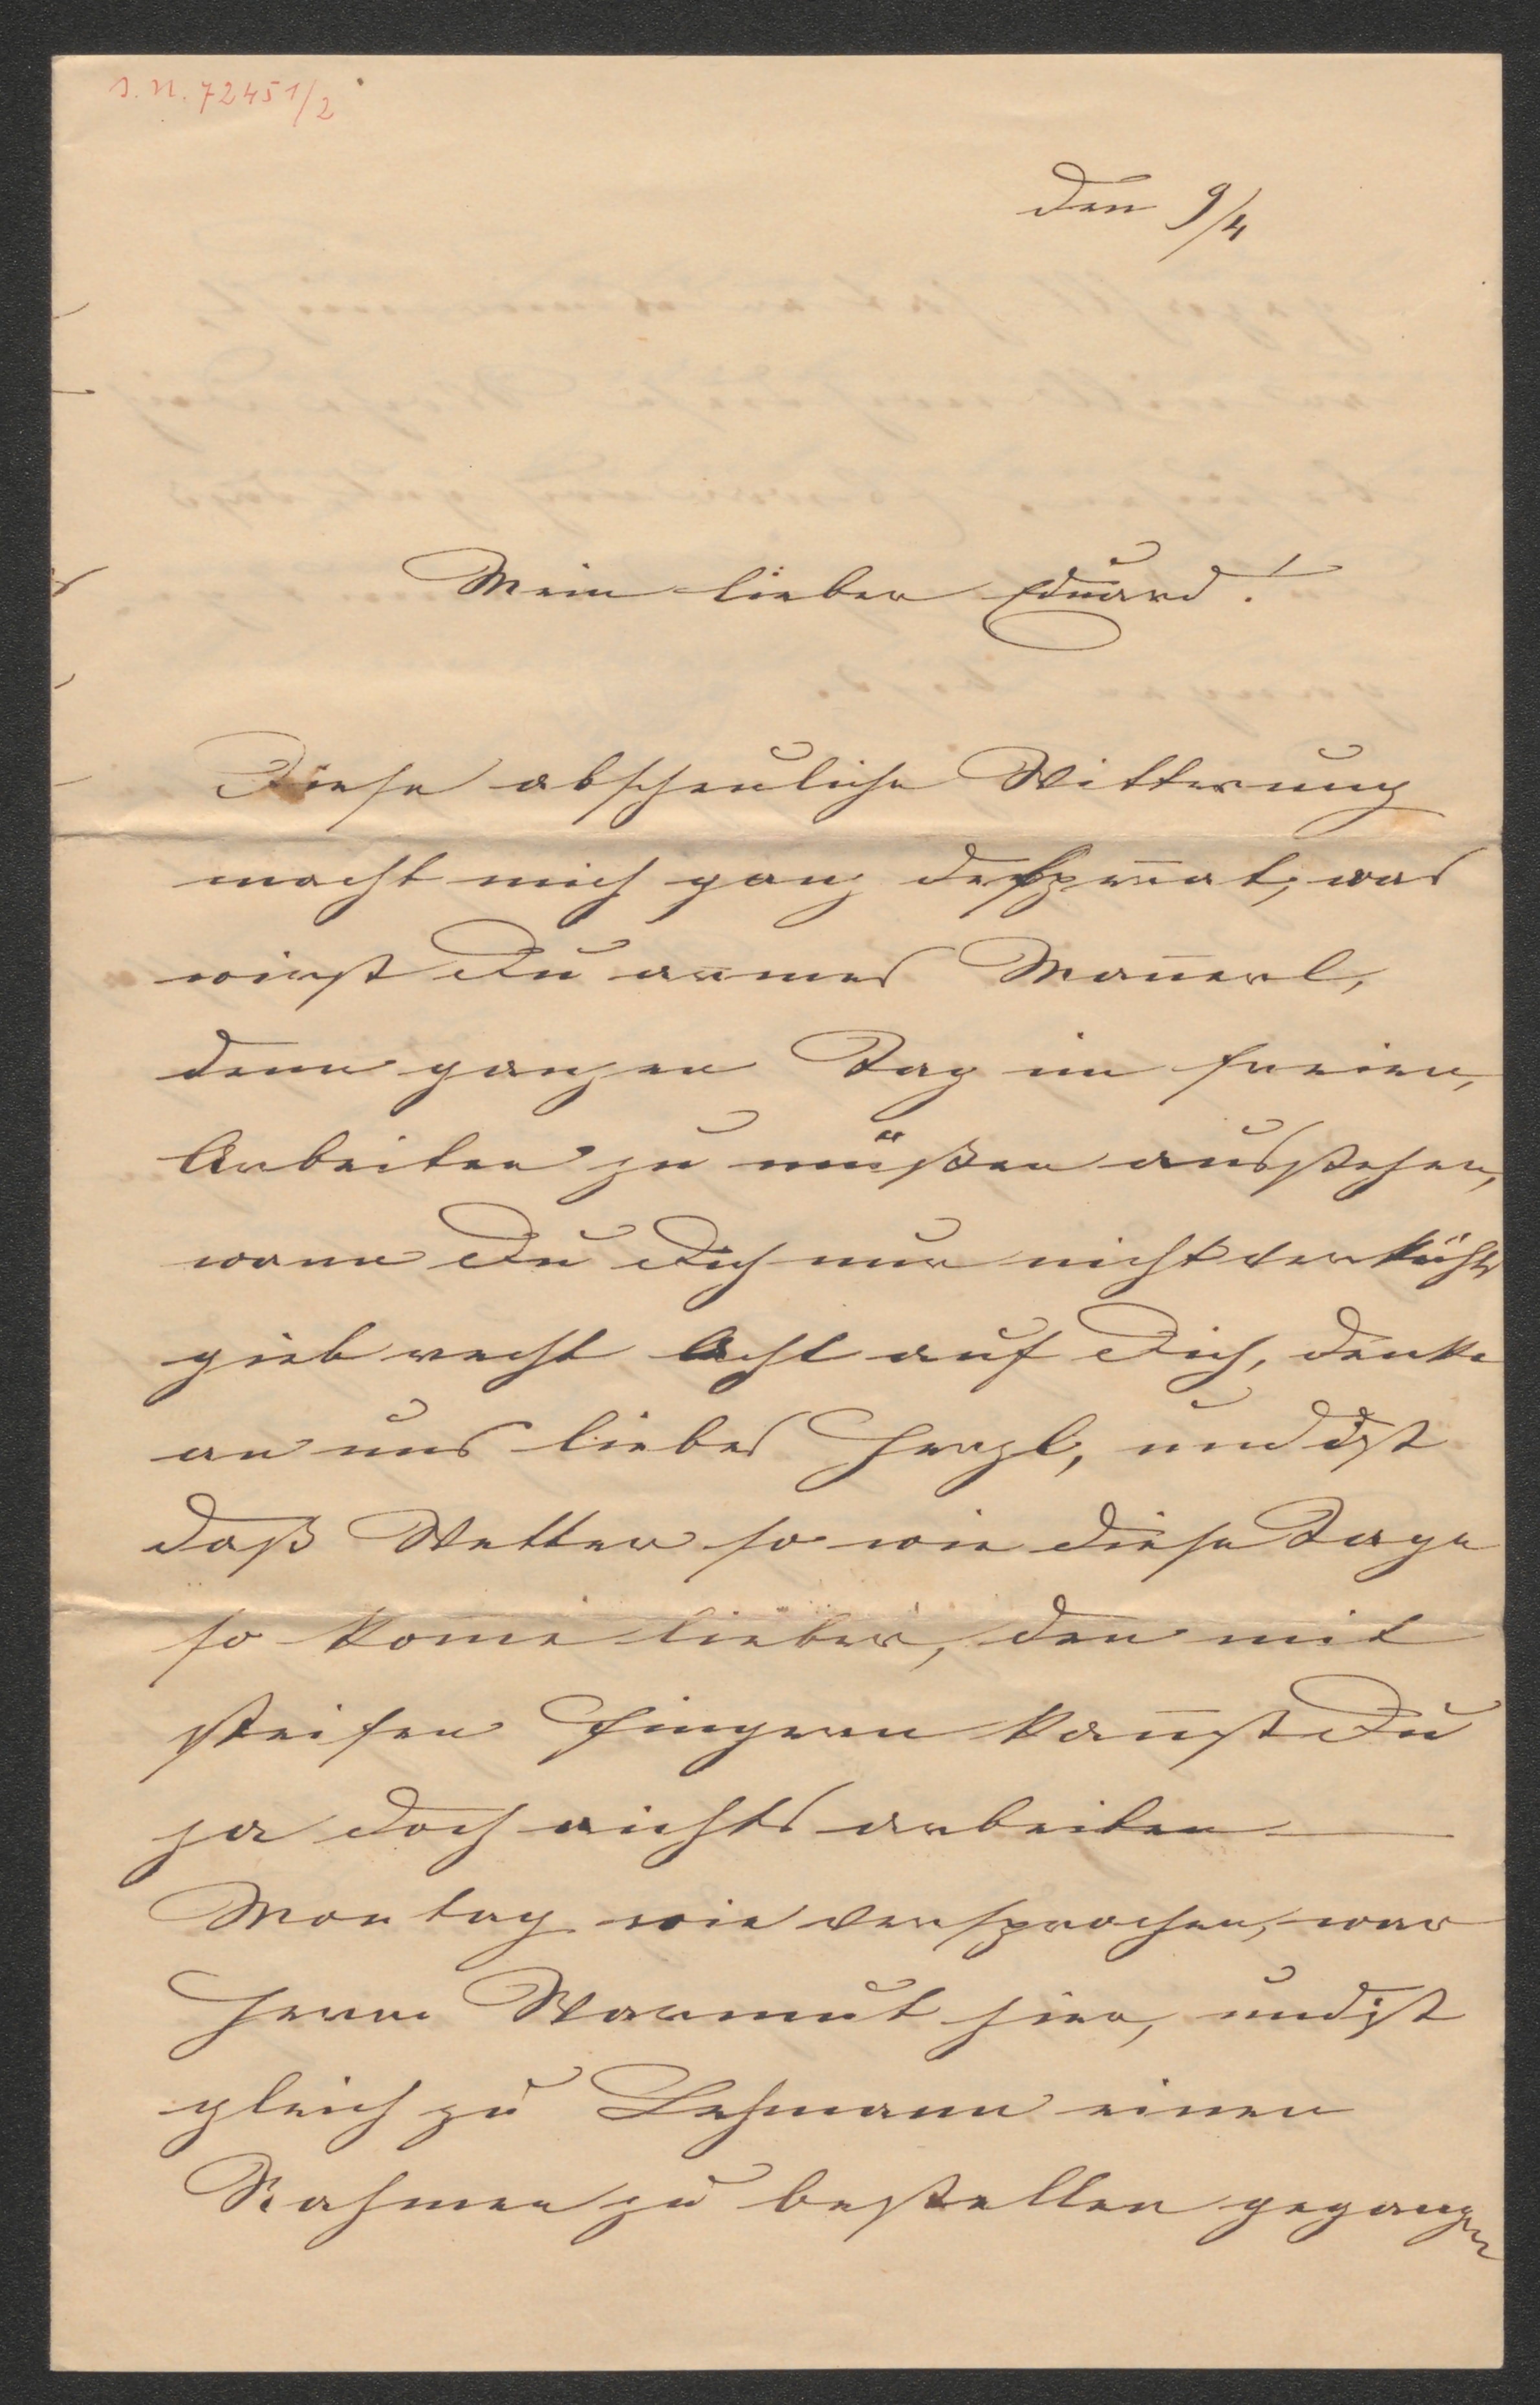 I. N. 72451/2
den 9/4
Mein lieber Eduard!
Diese abscheuliche Witterung
macht mich ganz desperat, was
wirst Du armes Mañerl,
denn ganzen Tag im freien,
Arbeiten zu müßen ausstehen,
wenn Du Dich nur nicht verkühlst
gieb recht Acht auf Dich, denke
an uns liebes Herzl, und ist
daß Wetter so wie diese Tage
so kom̄e lieber, den mit
steifen Fingern kan̄st Du
ja doch nichts arbeiten —
Montag wie versprochen, war
Herr Warmut hier, und ist
gleich zu Lehmann einen
Rahmen zu bestellen gegangen